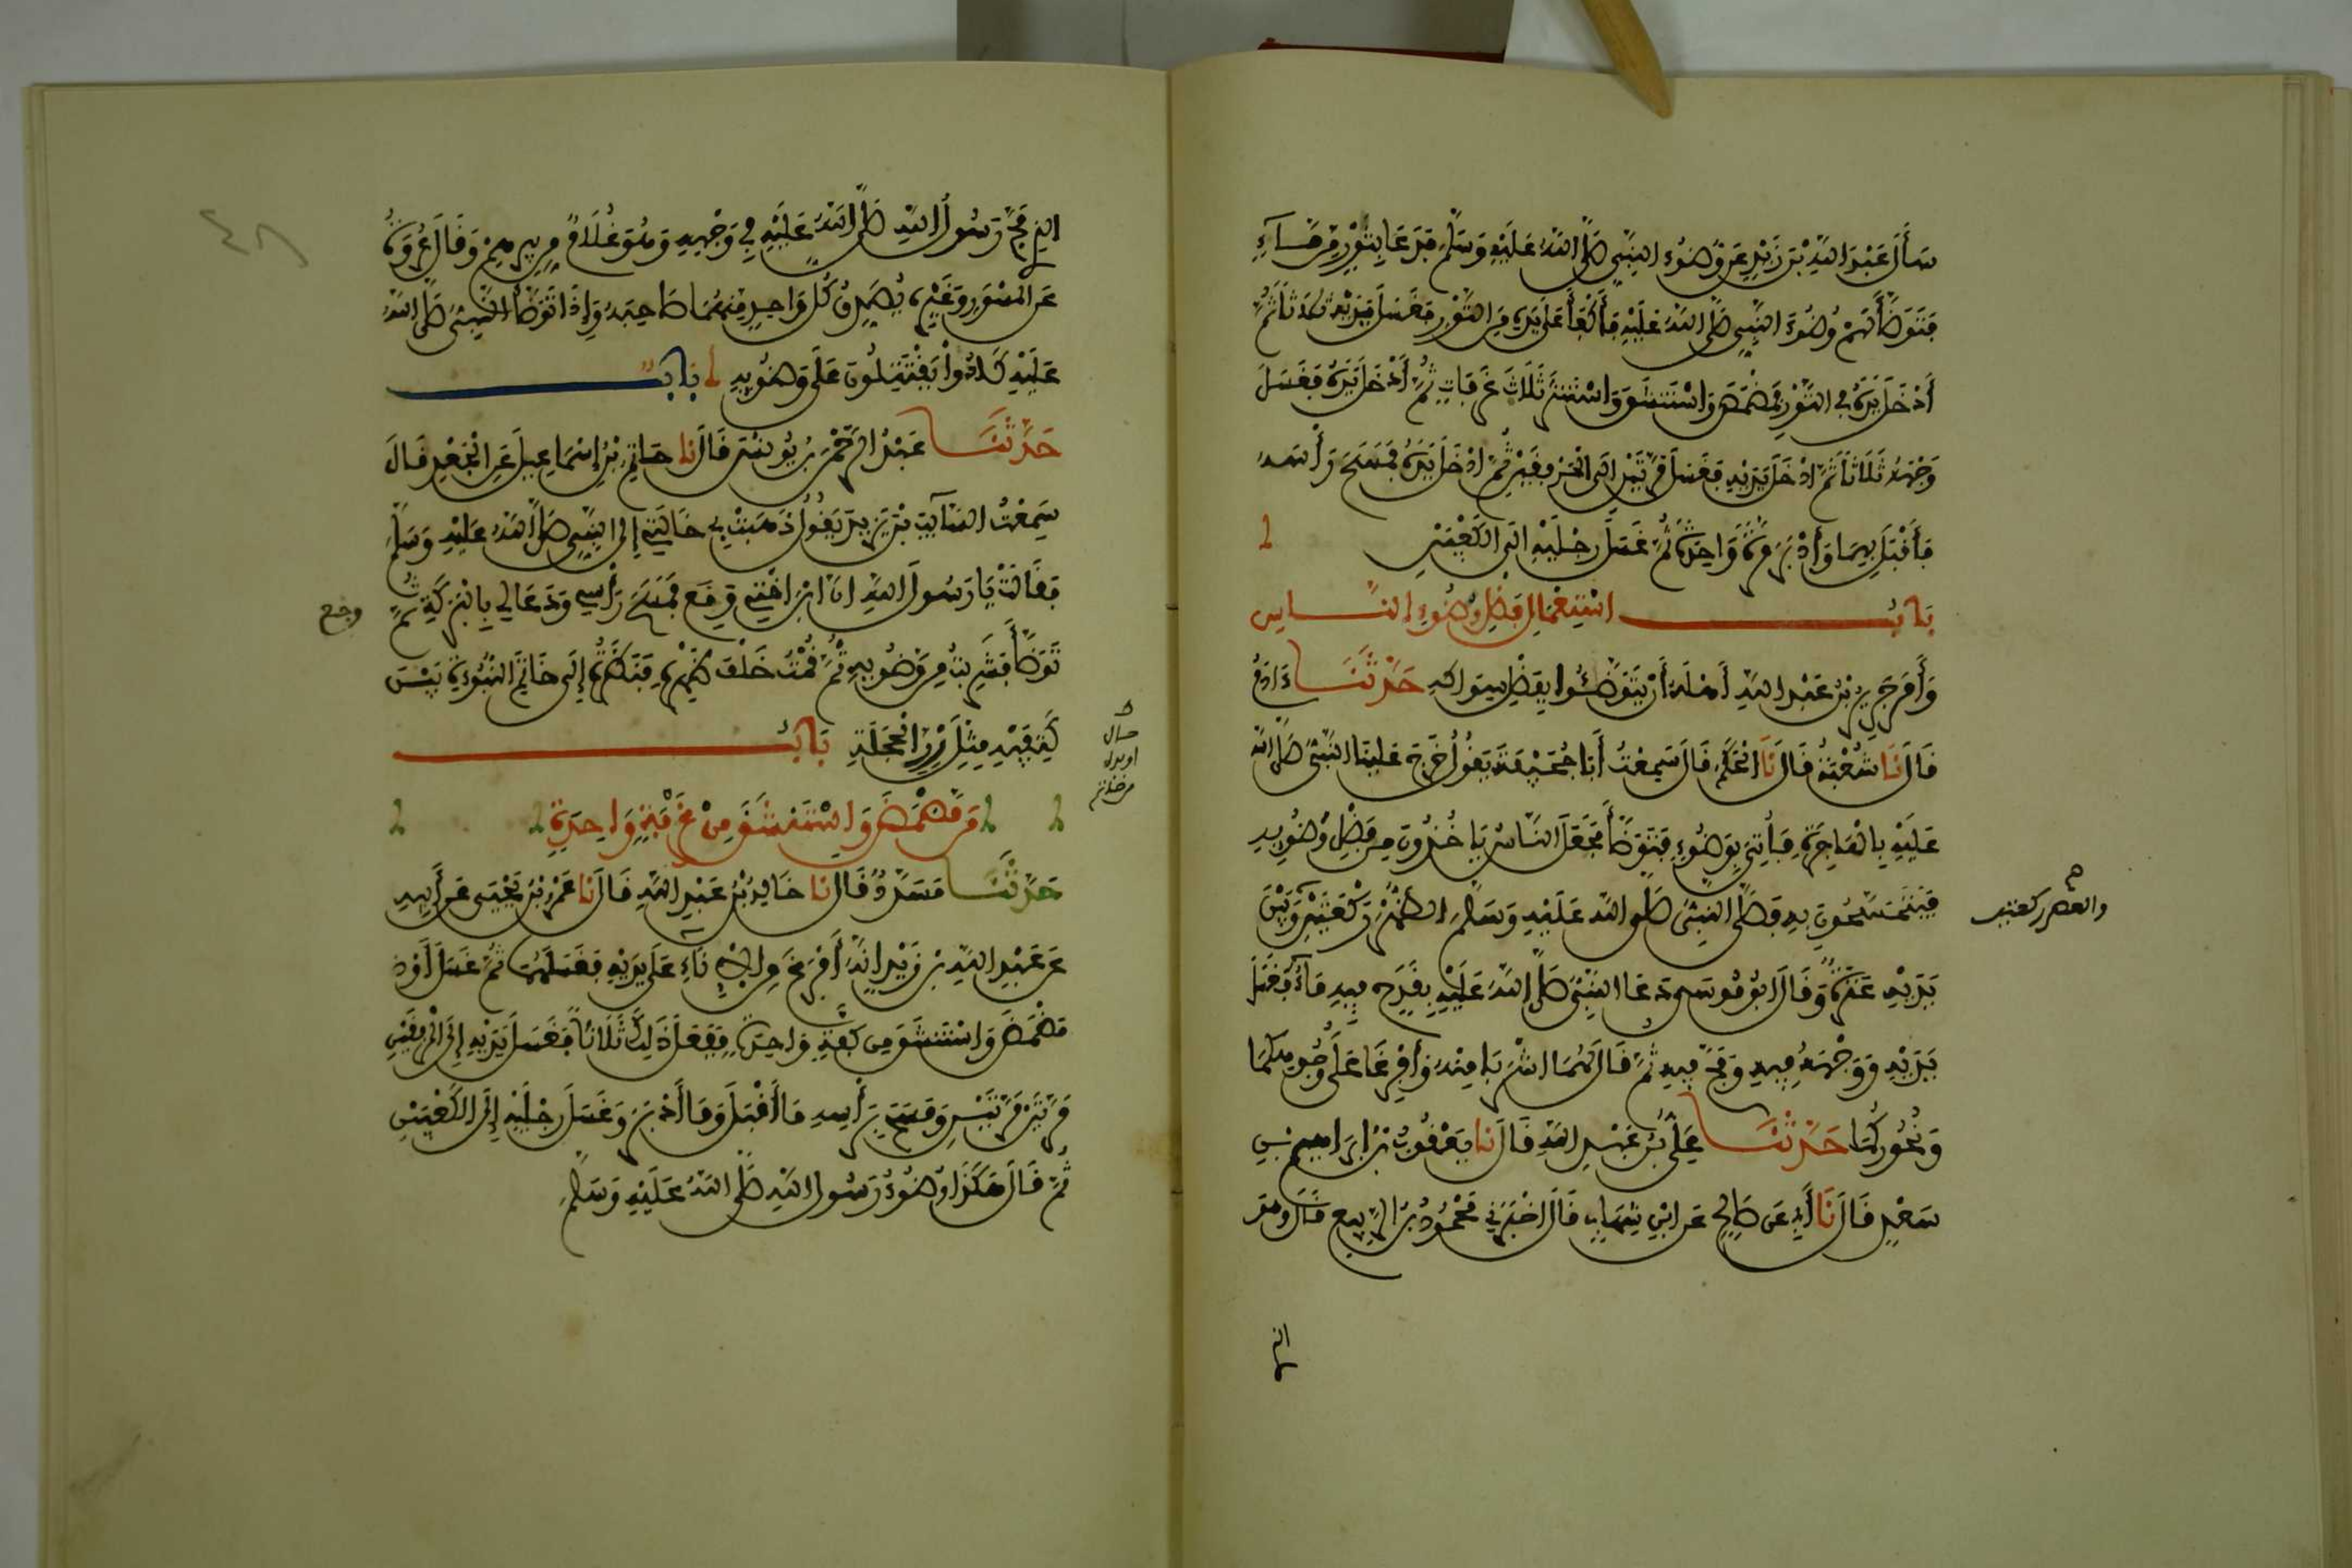 سَأَلَ عَبْدَ اللَّهِ بْنَ زَيْدٍ عَنْ وُضُوءِ النَّبِيِّ صَلَّى اللَّهُ عَلَيْهِ وَسَلَّمَ فَدَعَا بِتَوْرٍ مِنْ مَاءٍ
فَتَوَضَّأَ لَهُمْ وُضُوءَ النَّبِيِّ صَلَّى اللَّهُ عَلَيْهِ فَأَكْفَأَ عَلَى يَدِهِ مِنَ التَّوْرِ فَغَسَلَ يَدَيْهِ ثَلَاثًا ثُمَّ
أَدْخَلَ يَدَهُ فِي التَّوْرِ فَمَضْمَضَ وَاسْتَنْشَقَ وَاسْتَنْثَرَ ثَلَاثَ غَرَفَاتٍ ثُمَّ أَدْخَلَ يَدَهُ فَغَسَلَ
وَجْهَهُ ثَلَاثًا ثُمَّ ادْخَلَ يَدَيْهِ فَغَسَلَ مَرَّتَيْنِ الَى الْمِرْفَقَيْنِ ثُمَّ ادْخَلَ يَدَهُ فَمَسَحَ رَأْسَهُ
فَأَقْبَلَ بِهِمَا وَأَدْبَرَ مَرَّةً وَاحِدَةً ثُمَّ غَسَلَ رِجْلَيْهِ الَى الْكَعْبَيْنِ
بَابُ اسْتِعْمَالِ فَضْلِ وَضُوءِ النَّاسِ
وَأَمَرَ جَرِيرُ بْنُ عَبْدِ اللَّهِ أَهْلَهُ أَنْ يَتَوَضَّئُوا بِفَضْلِ سِوَاكِهِ حَدَّثَنَا ءَادَمُ
قَالَ نَا شُعْبَةُ قَالَ نَا الْحَكَمُ قَالَ سَمِعْتُ أَبَا جُحَيْفَةَ يَقُولُ خَرَجَ عَلَيْنَا النَّبِيُّ صَلَّى اللَّهُ
عَلَيْهِ بِالْهَاجِرَةِ فَأُتِيَ بِوَضُوءٍ فَتَوَضَّأَ فَجَعَلَ النَّاسُ يَأْخُذُونَ مِنْ فَضْلِ وَضُوئِهِ
فَيَتَمَسَّحُونَ بِهِ فَصَلَّى النَّبِيُّ صَلَّى اللَّهُ عَلَيْهِ وَسَلَّمَ الظُّهْرَ رَكْعَتَيْنِ وَبَيْنَ
والعصر ركعتين
يَدَيْهِ عَنَزَةٌ وَقَالَ ابُو مُوسَى دَعَا النَّبِيُّ صَلَّى اللَّهُ عَلَيْهِ بِقَدَحٍ فِيهِ مَاءٌ فَغَسَلَ
يَدَيْهِ وَوَجْهَهُ فِيهِ وَمَجَّ فِيهِ ثُمَّ قَالَ لَهُمَا اشْرَبَا مِنْهُ وَأَفْرِغَا عَلَى وُجُوهِكُمَا
وَنُحُورِكُمَا حَدَّثَنَا عَلِيُّ بْنُ عَبْدِ اللَّهِ قَالَ نَا يَعْقُوبُ بْنُ ابْرَاهِيمَ بْنِ
سَعْدٍ قَالَ نَا أَبِي عَنْ صَالِحٍ عَنِ ابْنِ شِهَابٍ قَالَ اخْبَرَنِي مَحْمُودُ بْنُ الرَّبِيعِ قَالَ وَهُوَ
الذي
الَّذِي مَجَّ رَسُولُ اللَّهِ صَلَّى اللَّهُ عَلَيْهِ فِي وَجْهِهِ وَهُوَ غُلَامٌ مِنْ بِيرِهِمْ وَقَالَ عُرْوَةُ
عَنِ الْمِسْوَرِ وَغَيْرِهِ يُصَدِّقُ كُلُّ وَاحِدٍ مِنْهُمَا صَاحِبَهُ وَإِذَا تَوَضَّأَ النَّبِيُّ صَلَّى اللَّهُ
عَلَيْهِ كَادُوا يَقْتَتِلُونَ عَلَى وَضُوئِهِ بَابٌ
حَدَّثَنَا عَبْدُ الرَّحْمَنِ بْنُ يُونُسَ قَالَ نَا حَاتِمُ بْنُ إِسْمَاعِيلَ عَنِ الْجَعْدِ قَالَ
سَمِعْتُ السَّائِبَ بْنَ يَزِيدَ يَقُولُ ذَهَبَتْ بِي خَالَتِي إِلَى النَّبِيِّ صَلَّى اللَّهُ عَلَيْهِ وَسَلَّمَ
فَقَالَتْ يَا رَسُولَ اللَّهِ انَّ ابْنَ اخْتِي وَقَعَ فَمَسَحَ رَأْسِي وَدَعَا لِي بِالْبَرَكَةِ ثُمَّ
وجع
تَوَضَّأَ فَشَرِبْتُ مِنْ وَضُوئِهِ ثُمَّ قُمْتُ خَلْفَ ظَهْرِهِ فَنَظَرْتُ إِلَى خَاتَمِ النُّبُوءَةِ بَيْنَ
كَتِفَيْهِ مِثْلَ زِرِّ الْحَجَلَةِ بَابُ
مَنْ مَضْمَضَ وَاسْتَنْشَقَ مِنْ غَرْفَةٍ وَاحِدَةٍ
حَدَّثَنَا مُسَدَّدٌ قَالَ نَا خَالِدُ بْنُ عَبْدِ اللَّهِ قَالَ نَا عَمْرُو بْنُ يَحْيَى عَنْ أَبِيهِ
عَنْ عَبْدِ اللَّهِ بْنِ زَيْدٍ انَّهُ أَفْرَغَ مِنَ الْإِنَاءِ عَلَى يَدَيْهِ فَغَسَلَهُمَا ثُمَّ غَسَلَ أَوْ
مَضْمَضَ وَاسْتَنْشَقَ مِنْ كَفَّةٍ وَاحِدَةٍ فَفَعَلَ ذَلِكَ ثَلَاثًا فَغَسَلَ يَدَيْهِ إِلَى الْمِرْفَقَيْنِ
مَرَّتَيْنِ مَرَّتَيْنِ وَمَسَحَ بِرَأْسِهِ مَا أَقْبَلَ وَمَا أَدْبَرَ وَغَسَلَ رِجْلَيْهِ إِلَى الْكَعْبَيْنِ
ثُمَّ قَالَ هَكَذَا وُضُوءُ رَسُولِ اللَّهِ صَلَّى اللَّهُ عَلَيْهِ وَسَلَّمَ